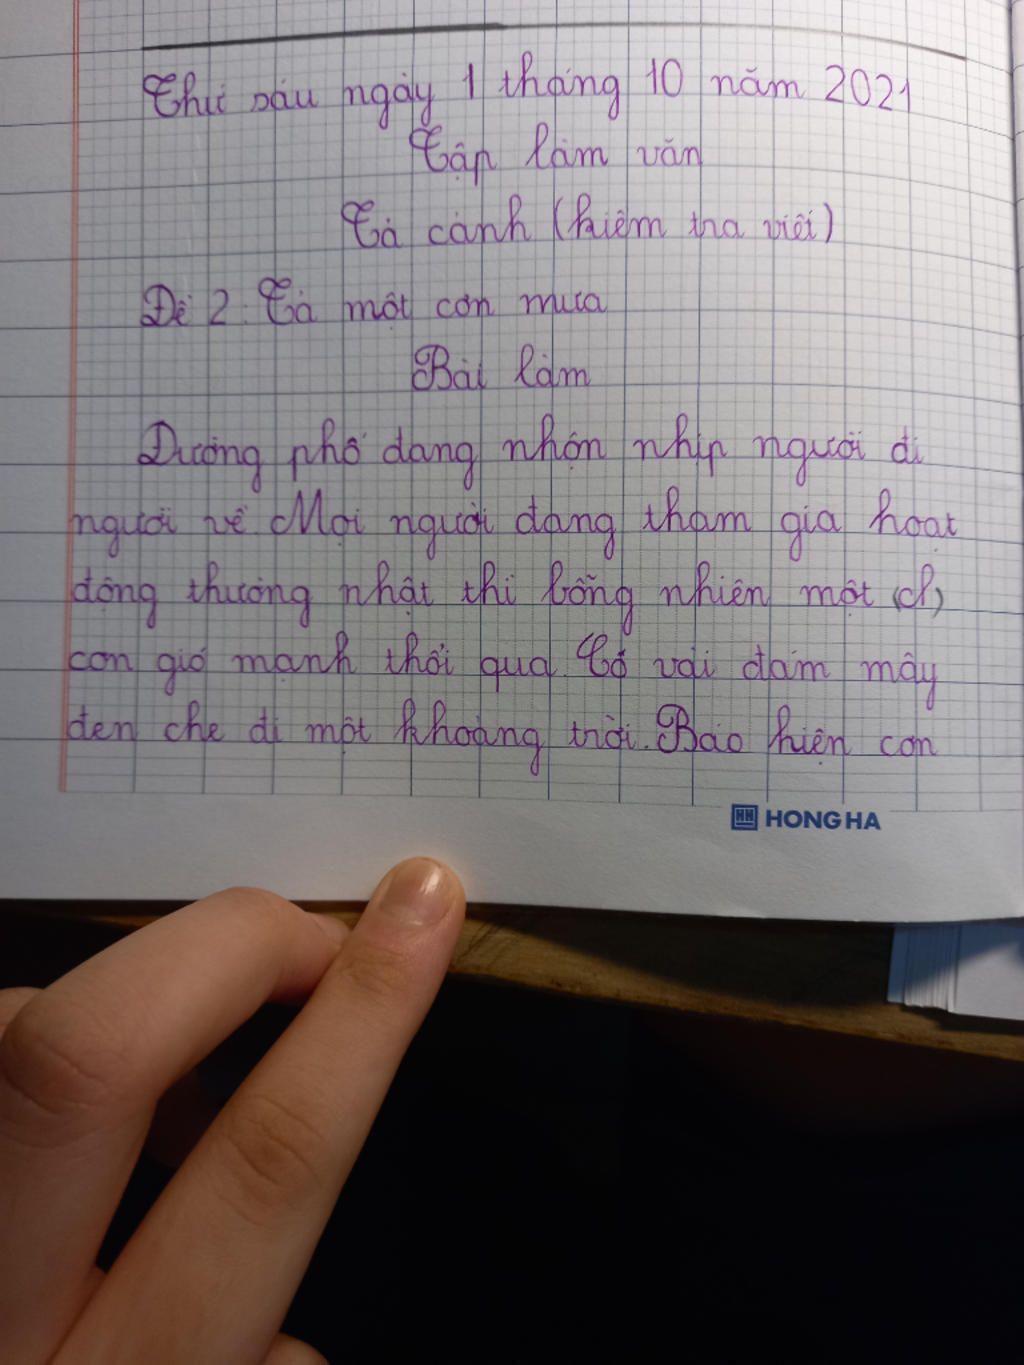 Thứ sáu ngày 1 tháng 10 năm 2021
Tập làm văn
Tả cảnh (kiểm tra viết)
Đề 2: Tả một cơn mưa
Bài làm
Đường phố đang nhộn nhịp người đi
người về. Mọi người đang tham gia hoạt
động thường nhật thì bỗng nhiên một (ch)
cơn gió mạnh thổi qua. Có vài đám mây
đen che đi một khoảng trời. Báo hiện cơn
HONG HA